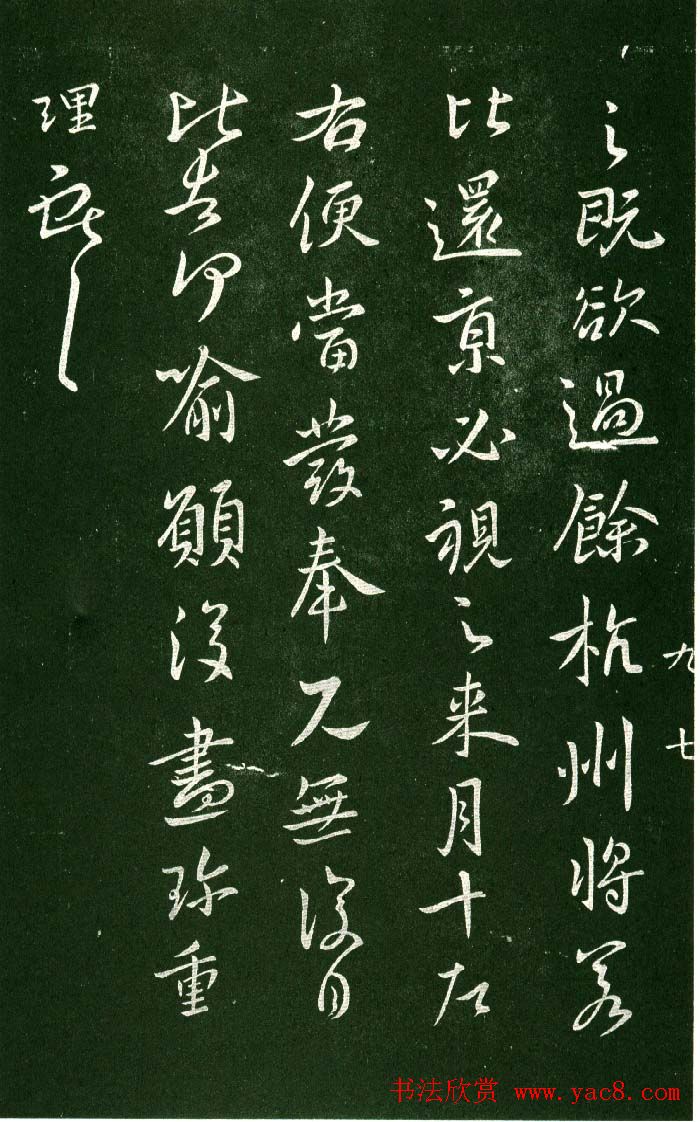 九七
之既欲過餘杭州將若
比還京必視之來月十左
右便當發奉見無復日
比告何喻願復盡珍重
理
书法欣赏 www.yac8.com